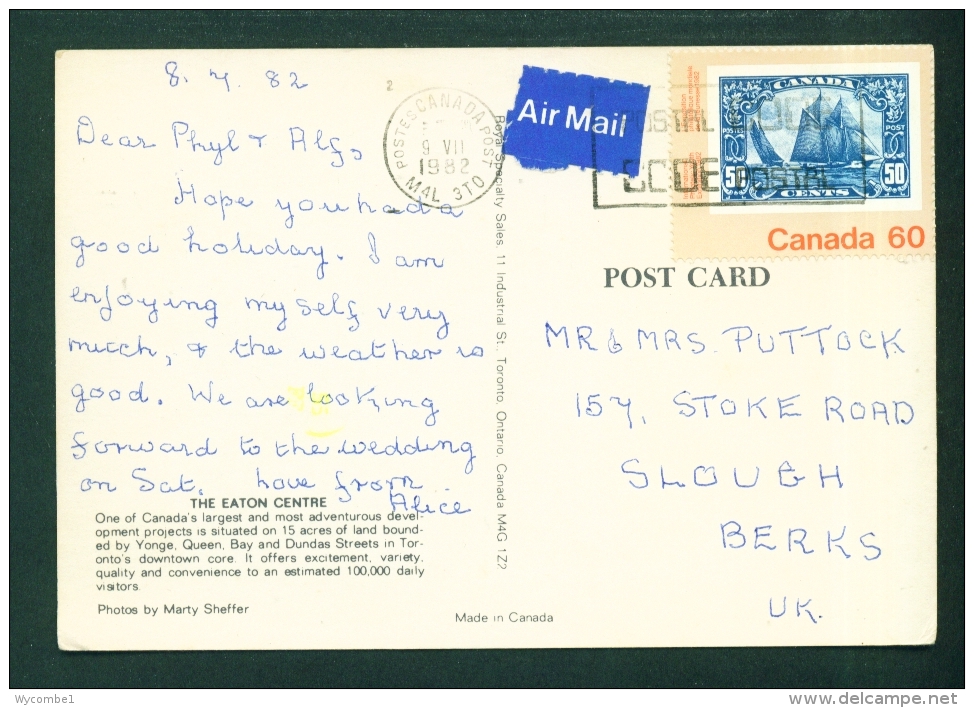 8.7.82
Dear Phyl & Alf,
Hope you had a
good holiday. I am
enjoying myself very
much, & the weather is
good. We are looking
forward to the wedding
on Sat. Love from
Alice
THE EATON CENTRE
One of Canada's largest and most adventurous devel-
opment projects is situated on 15 acres of land bound-
ed by Yonge, Queen, Bay and Dundas Streets in Tor-
onto's downtown core. It offers excitement, variety,
quality and convenience to an estimated 100,000 daily
visitors.
Photos by Marty Sheffer
Made in Canada
Royal Specialty Sales, 11 Industrial St., Toronto, Ontario, Canada M4G 1Z2
2
POSTES CANADA POST
9 VII
1982
M4L 3T0
Air Mail
POSTAL CODE
CODE POSTAL
CANADA
POSTES POST
50 50
CENTS
Canada 60
POST CARD
MR & MRS. PUTTOCK
157, STOKE ROAD
SLOUGH
BERKS
UK.
Wycombe1
www.delcampe.net